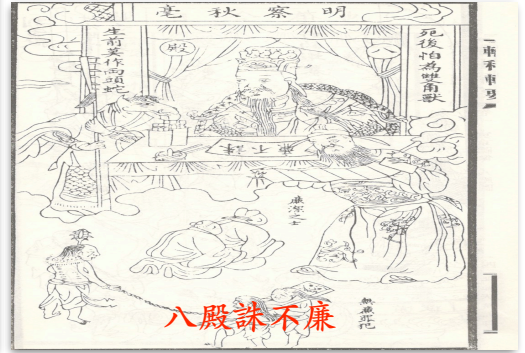 明察秋毫
死後怕為雙角獸
生前莫作兩頭蛇
誅不廉
廉潔之士
無廉罪犯
八殿誅不廉